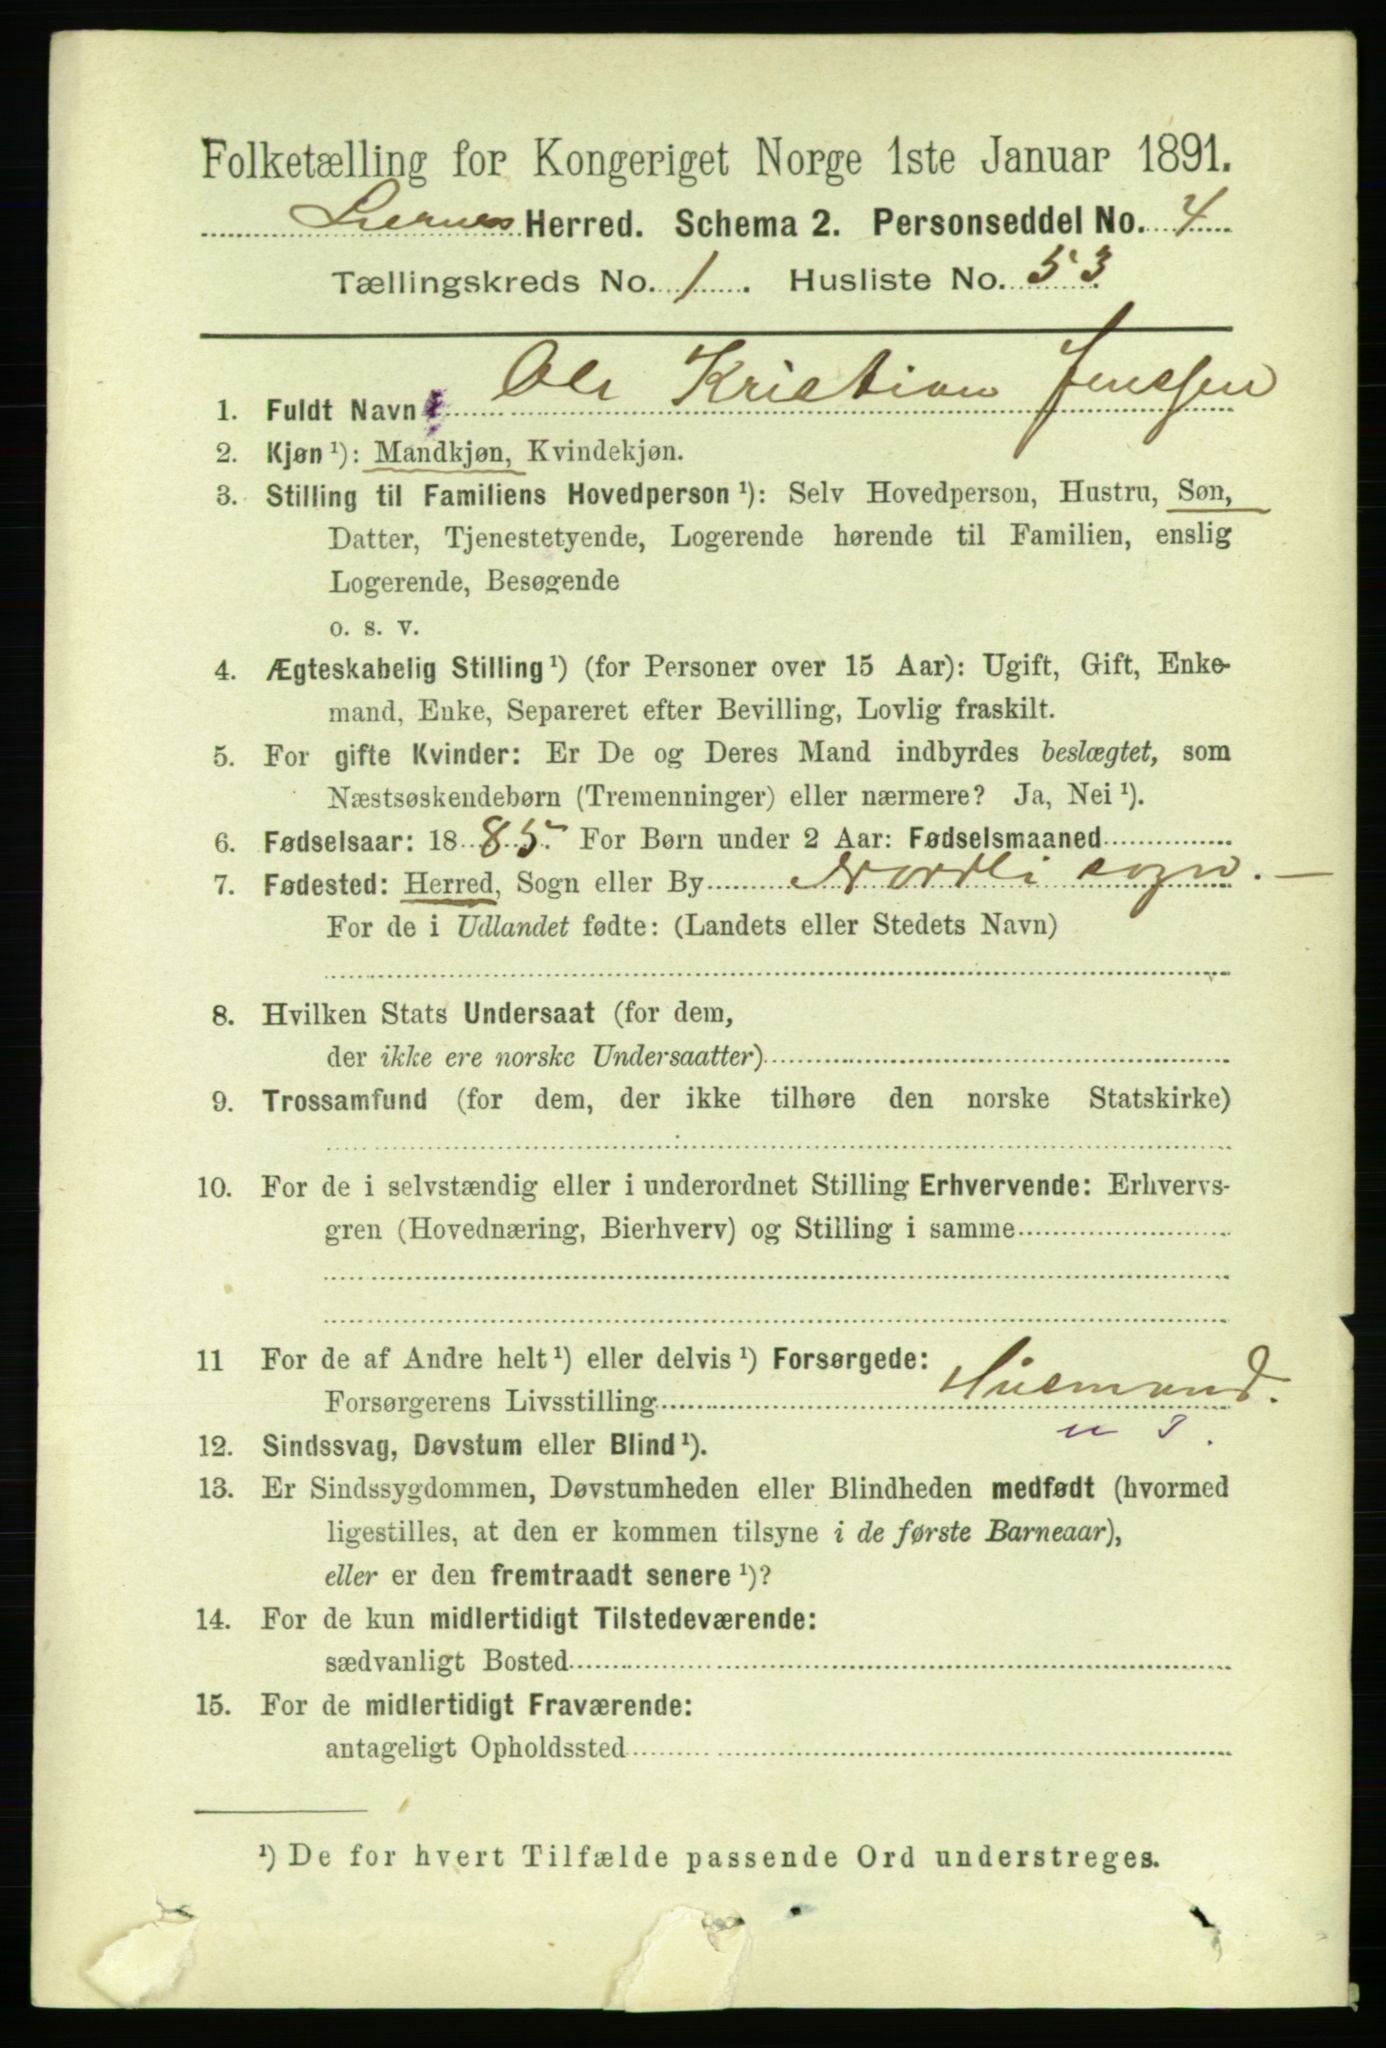 Folketælling for Kongeriget Norge 1ste Januar 1891.
Liernes Herred. Schema 2. Personseddel No. 4
Tællingskreds No. 1. Husliste No. 53
1. Fuldt Navn: Ole Kristian Jenssen
2. Kjøn ¹): Mandkjøn, Kvindekjøn.
3. Stilling til Familiens Hovedperson ¹): Selv Hovedperson, Hustru, Søn,
Datter, Tjenestetyende, Logerende hørende til Familien, enslig
Logerende, Besøgende
o. s. v.
4. Ægteskabelig Stilling ¹) (for Personer over 15 Aar): Ugift, Gift, Enke-
mand, Enke, Separeret efter Bevilling, Lovlig fraskilt.
5. For gifte Kvinder: Er De og Deres Mand indbyrdes beslægtet, som
Næstsøskendebørn (Tremenninger) eller nærmere? Ja, Nei ¹).
6. Fødselsaar: 1885. For Børn under 2 Aar: Fødselsmaaned
7. Fødested: Herred, Sogn eller By Nordli sogn. —
For de i Udlandet fødte: (Landets eller Stedets Navn)
8. Hvilken Stats Undersaat (for dem,
der ikke ere norske Undersaatter)
9. Trossamfund (for dem, der ikke tilhøre den norske Statskirke)
10. For de i selvstændig eller i underordnet Stilling Erhvervende: Erhvervs-
gren (Hovednæring, Bierhverv) og Stilling i samme
11 For de af Andre helt ¹) eller delvis ¹) Forsørgede:
Forsørgerens Livsstilling Husmand.
12. Sindssvag, Døvstum eller Blind ¹).
13. Er Sindssygdommen, Døvstumheden eller Blindheden medfødt (hvormed
ligestilles, at den er kommen tilsyne i de første Barneaar),
eller er den fremtraadt senere ¹)?
14. For de kun midlertidigt Tilstedeværende:
sædvanligt Bosted
15. For de midlertidigt Fraværende:
antageligt Opholdssted
¹) De for hvert Tilfælde passende Ord understreges.